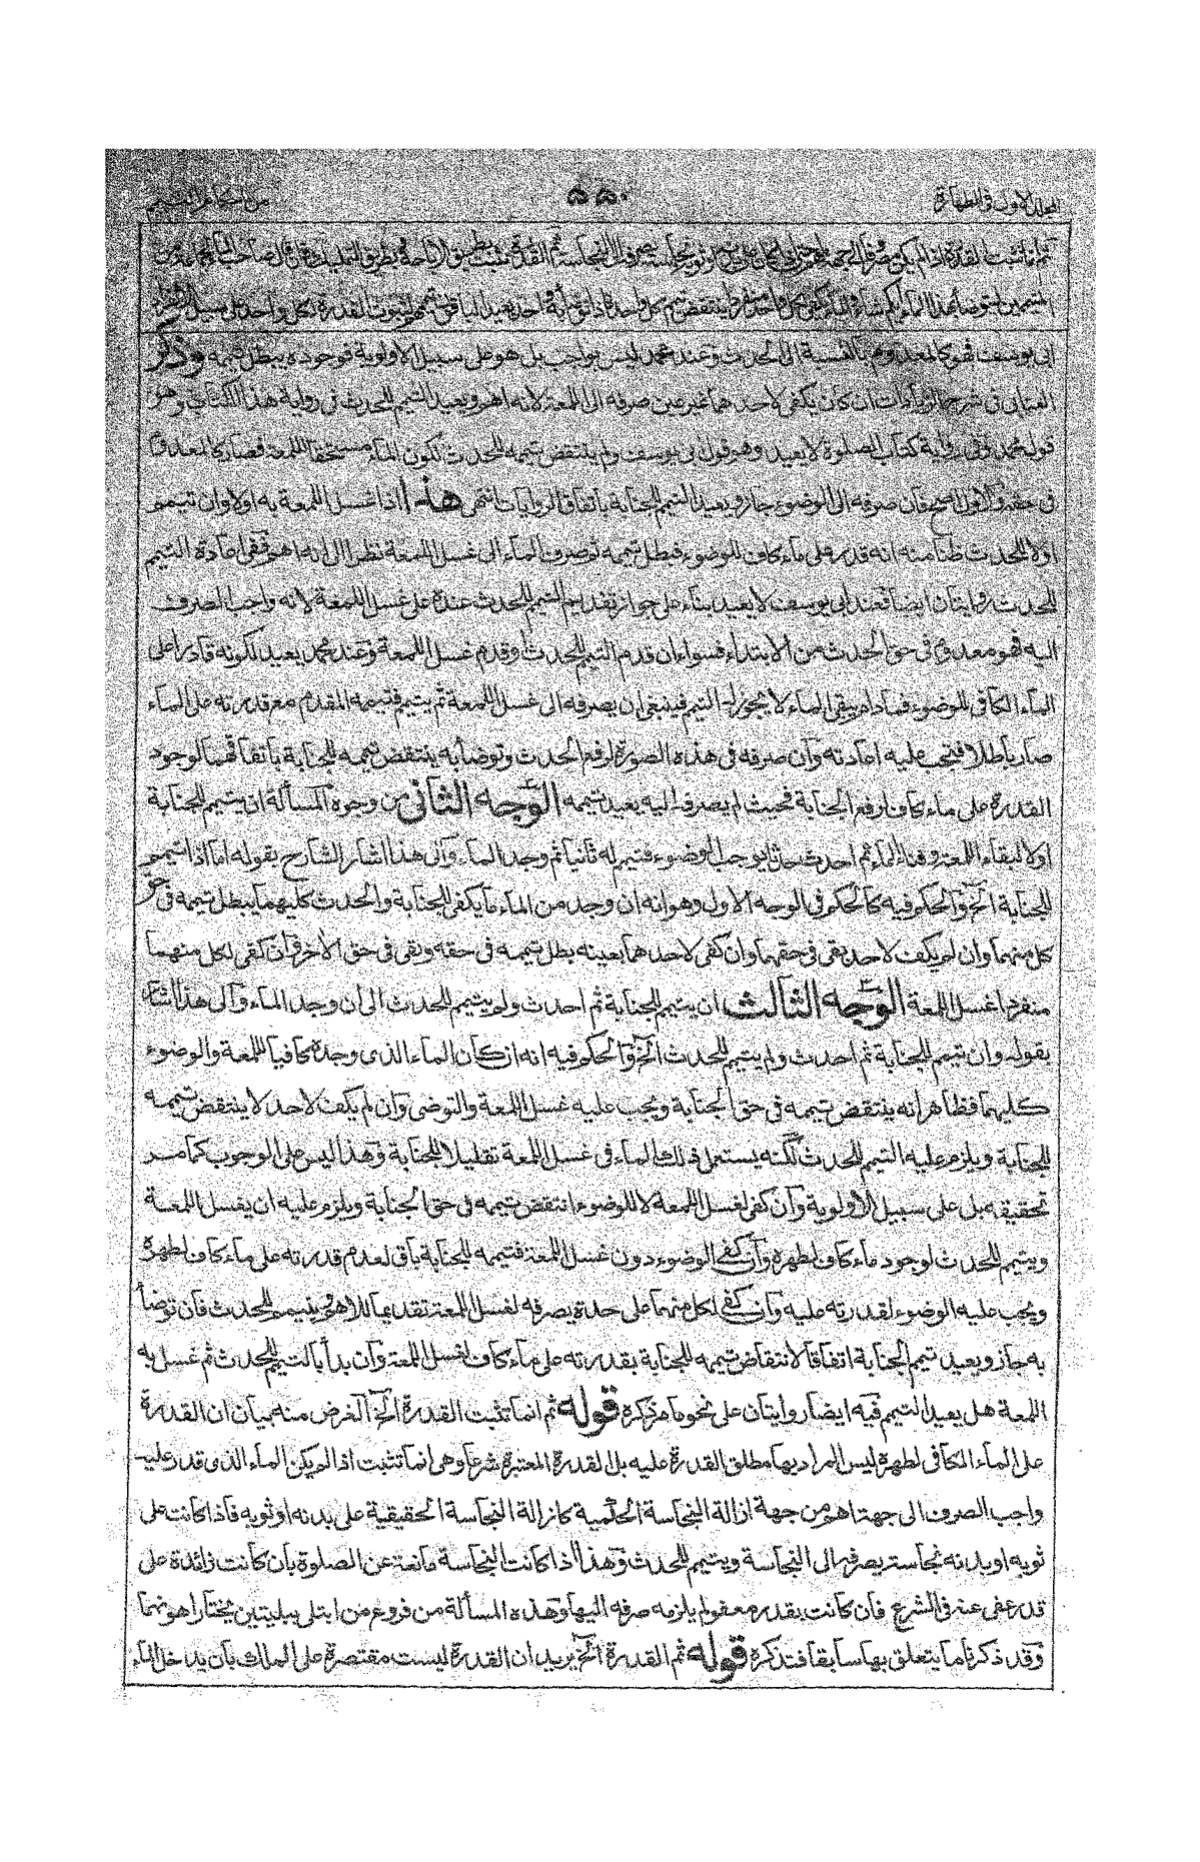 المجلد الاول فى الطهارة
٥٥٠
من احكام التيمم
ثم انما تثبت القدرة اذا لم يكن مصروفا الى جهة اهم حتى اذا كان على بدنه او ثوبه نجاسة يصرفه الى النجاسة ثم القدرة تثبت بطريق الاباحة وبطريق التمليك فان قال صاحب الماء لجماعة من
المتيممين ليتوضأ بهذا الماء ايكم شاء والماء يكفى لكل واحد منفردا ينتقض تيمم كل واحد فاذا توضأ به احد يعيد الباقون تيممهم لثبوت القدرة لكل واحد على سبيل الانفراد
ابى يوسف فهو كالمعدوم بالنسبة الى الحدث وعند محمد ليس بواجب بل هو على سبيل الاولوية فوجوده يبطل تيممه وذكر
العتابى فى شرح الزيادات ان كان يكفى لاحدهما غير عين صرفه الى اللمعة لانه اهم ويعيد التيمم للحدث فى رواية هذا الكتاب وهو
قول محمد وفى رواية كتاب الصلوة لا يعيد وهو قول ابى يوسف ولم ينتقض تيممه للحدث لكون الماء مستحقا للمعة فصار كالمعدوم
فى حقه والاول اصح فان صرفه الى الوضوء جاز ويعيد التيمم للجنابة باتفاق الروايات انتهى هذا اذا غسل اللمعة به اولا وان تيمم
اولا للحدث ظنا منه انه قدر على ماء كاف للوضوء فبطل تيممه ثم صرف الماء الى غسل اللمعة نظرا الى انه اهم ففى اعادة التيمم
للحدث روايتان ايضا فعند ابى يوسف لا يعيد بناء على جواز تقديم التيمم للحدث عنده على غسل اللمعة لانه واجب الصرف
اليه فهو معدوم فى حق الحدث من الابتداء فسواء ان قدم التيمم للحدث او قدم غسل اللمعة وعند محمد يعيد لكونه قادرا على
الماء الكافى للوضوء فما دام يبقى الماء لا يجوز له التيمم فينبغى ان يصرفه الى غسل اللمعة ثم يتيمم فتيممه المقدم مع قدرته على الماء
صار باطلا فتجب عليه اعادته وان صرفه فى هذه الصورة لرفع الحدث وتوضأ به ينتقض تيممه للجنابة باتفاقهما لوجود
القدرة على ماء كاف لرفع الجنابة فحيث لم يصرفه اليه يعيد تيممه الوجه الثانى من وجوه المسألة ان يتيمم للجنابة
اولا لبقاء اللمعة وفناء الماء ثم احدث حدثا يوجب الوضوء فتيمم له ثانيا ثم وجد الماء والى هذا اشار الشارح بقوله اما اذا تيمم
للجنابة الخ والحكم فيه كالحكم فى الوجه الاول وهو انه ان وجد من الماء ما يكفى للجنابة والحدث كليهما يبطل تيممه فى حق
كل منهما وان لم يكف لاحد بقى فى حقهما وان كفى لاحدهما بعينه بطل تيممه فى حقه وبقى فى حق الآخر فان كفى لكل منهما
منفردا غسل اللمعة الوجه الثالث ان يتيمم للجنابة ثم احدث ولم يتيمم للحدث الى ان وجد الماء والى هذا اشار
بقوله وان تيمم للجنابة ثم احدث ولم يتيمم للحدث الخ والحكم فيه انه ان كان الماء الذى وجده كافيا للمعة والوضوء
كليهما فظاهر انه ينتقض تيممه فى حق الجنابة ويجب عليه غسل اللمعة والتوضى وان لم يكف لاحد لا ينتقض تيممه
للجنابة ويلزم عليه التيمم للحدث لكنه يستعمل ذلك الماء فى غسل اللمعة تقليلا للجنابة وهذا ليس على الوجوب كما مر
تحقيقه بل على سبيل الاولوية وان كفى لغسل اللمعة لا للوضوء انتقض تيممه فى حق الجنابة ويلزم عليه ان يغسل اللمعة
ويتيمم للحدث لوجود ماء كاف لطهره وان كفى للوضوء دون غسل اللمعة فتيممه للجنابة باق لعدم قدرته على ماء كاف لطهره
ويجب عليه الوضوء لقدرته عليه وان كفى لكل منهما على حدة يصرفه لغسل اللمعة تقديما للاهم ويتيمم للحدث فان توضأ
به جاز ويعيد تيمم الجنابة اتفاقا لانتقاض تيممه للجنابة بقدرته على ماء كاف لغسل اللمعة وان بدأ بالتيمم للحدث ثم غسل به
اللمعة هل يعيد التيمم فيه ايضا روايتان على نحو ما مر ذكره قوله ثم انما تثبت القدرة الخ الغرض منه بيان ان القدرة
على الماء الكافى لطهره ليس المراد بها مطلق القدرة عليه بل القدرة المعتبرة شرعا وهى انما تثبت اذا لم يكن الماء الذى قدر عليه
واجب الصرف الى جهة اهم من جهة ازالة النجاسة الحكمية كازالة النجاسة الحقيقية على بدنه او ثوبه فاذا كانت على
ثوبه او بدنه نجاسة يصرفه الى النجاسة ويتيمم للحدث وهذا اذا كانت النجاسة مانعة عن الصلوة بان كانت زائدة على
قدر عفى عنه فى الشرع فان كانت بقدر معفو لم يلزمه صرفه اليها وهذه المسألة من فروع من ابتلى ببليتين يختار اهونهما
وقد ذكرنا ما يتعلق بها سابقا فتذكره قوله ثم القدرة الخ يريد ان القدرة ليست مقتصرة على الملك بان يدخل الماء